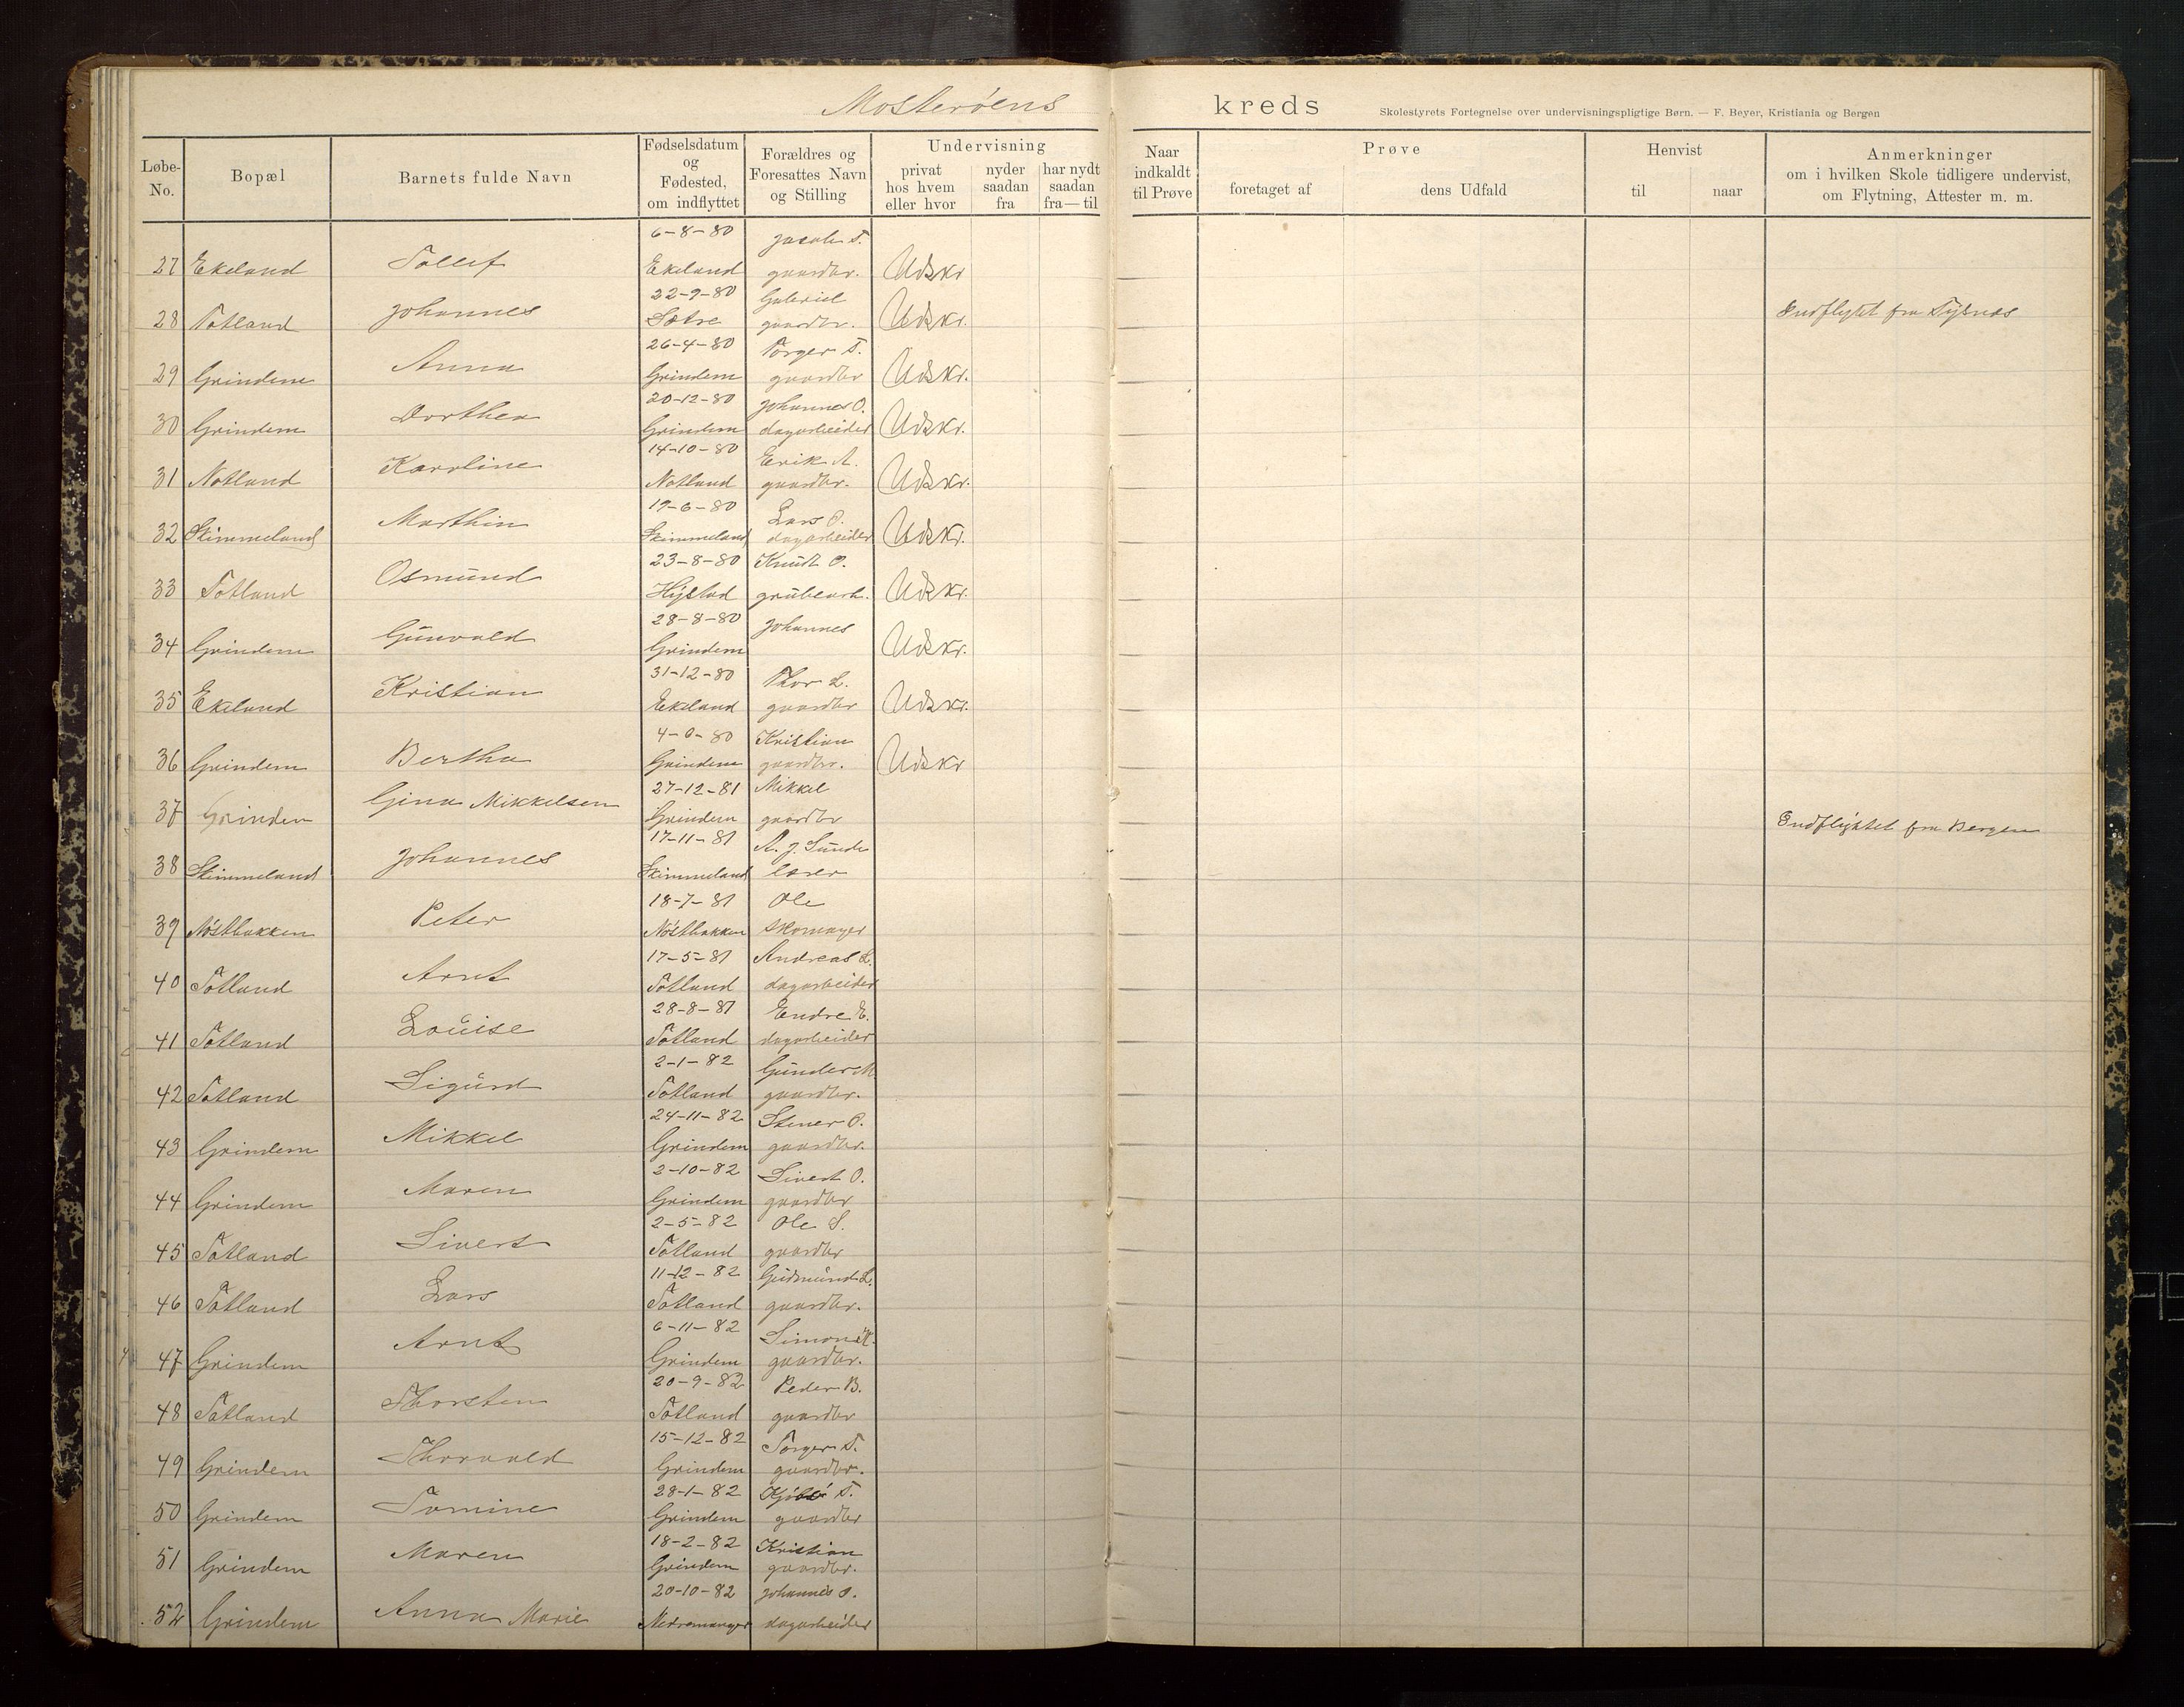 Mosterøens kreds Skolestyrets Fortegnelse over undervisningspligtige Børn. — F. Beyer, Kristiania og Bergen
Løbe-No. Bopæl Barnets fulde Navn Fødselsdatum og Fødested, om indflyttet Forældres og Foresattes Navn og Stilling Undervisning privat hos hvem eller hvor nyder saadan fra har nydt saadan fra—til Naar indkaldt til Prøve Prøve foretaget af dens Udfald Henvist til naar Anmerkninger om i hvilken Skole tidligere undervist, om Flytning, Attester m. m.
6-8-80 Jacob T.
27 Ekeland Tollef Ekeland gaardbr. Udskr
22-9-80 Gabriel
28 Totland Johannes Sætre gaardbr. Udskr. Indflyttet fra Tysnæs
26-4-80 Torger T.
29 Grindem Anna Grindem gaardbr Udskr.
20-12-80 Johannes O.
30 Grindem Dorthea Grindem dagarbeider Udskr.
14-10-80 Erik A.
31 Notland Karoline Notland gaardbr. Udskr.
19-6-80 Lars O.
32 Skimmeland Marthin Skimmeland dagarbeider Udskr.
23-8-80 Knudt O.
33 Totland Osmund grubearb. Udskr.
28-8-80 Johannes
34 Grindem Gunvald Grindem Udskr.
31-12-80 Thor L.
35 Ekeland Kristian Ekeland gaardbr Udskr.
4-0-80 Kristian
36 Grindem Bertha Grindem gaardbr. Udskr
27-12-81 Mikkel
37 Grinden Gina Mikkelsen Grindem gaardbr Indflyttet fra Bergen
17-11-81 A. J. Sunde
38 Skimmeland Johannes Skimmeland lærer
18-7-81 Ole
39 Nøstbakken Peter Nøstbakken skomager
17-5-81 Andreas L.
40 Totland Arnt Totland dagarbeider
28-8-81 Endre E.
41 Totland Louise Totland dagarbeider
2-1-82 Gunder M.
42 Totland Sigurd Totland gaardbr.
24-11-82 Stener O.
43 Grindem Mikkel Grindem gaardbr.
2-10-82 Sivert O.
44 Grindem Maren Grindem gaardbr
2-5-82 Ole S.
45 Totland Sivert Totland gaardbr
11-12-82 Gudmund L.
46 Totland Lars Totland gaardbr.
6-11-82 Simon
47 Grindem Arnt Grindem gaardbr.
20-9-82 Peder B.
48 Totland Thorsten Totland gaardbr
15-12-82 Torger T.
49 Grindem Thorvald Grindem gaardbr.
28-1-82 T.
50 Grindem Tomine Grindem gaardbr
18-2-82 Kristian
51 Grindem Maren Grindem gaardbr.
20-10-82 Johannes O.
52 Grindem Anna Marie dagarbeider